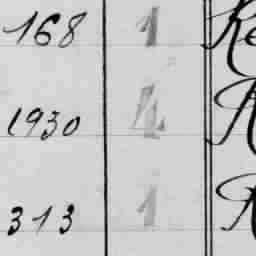 168 1 Re
1930 4
313 1